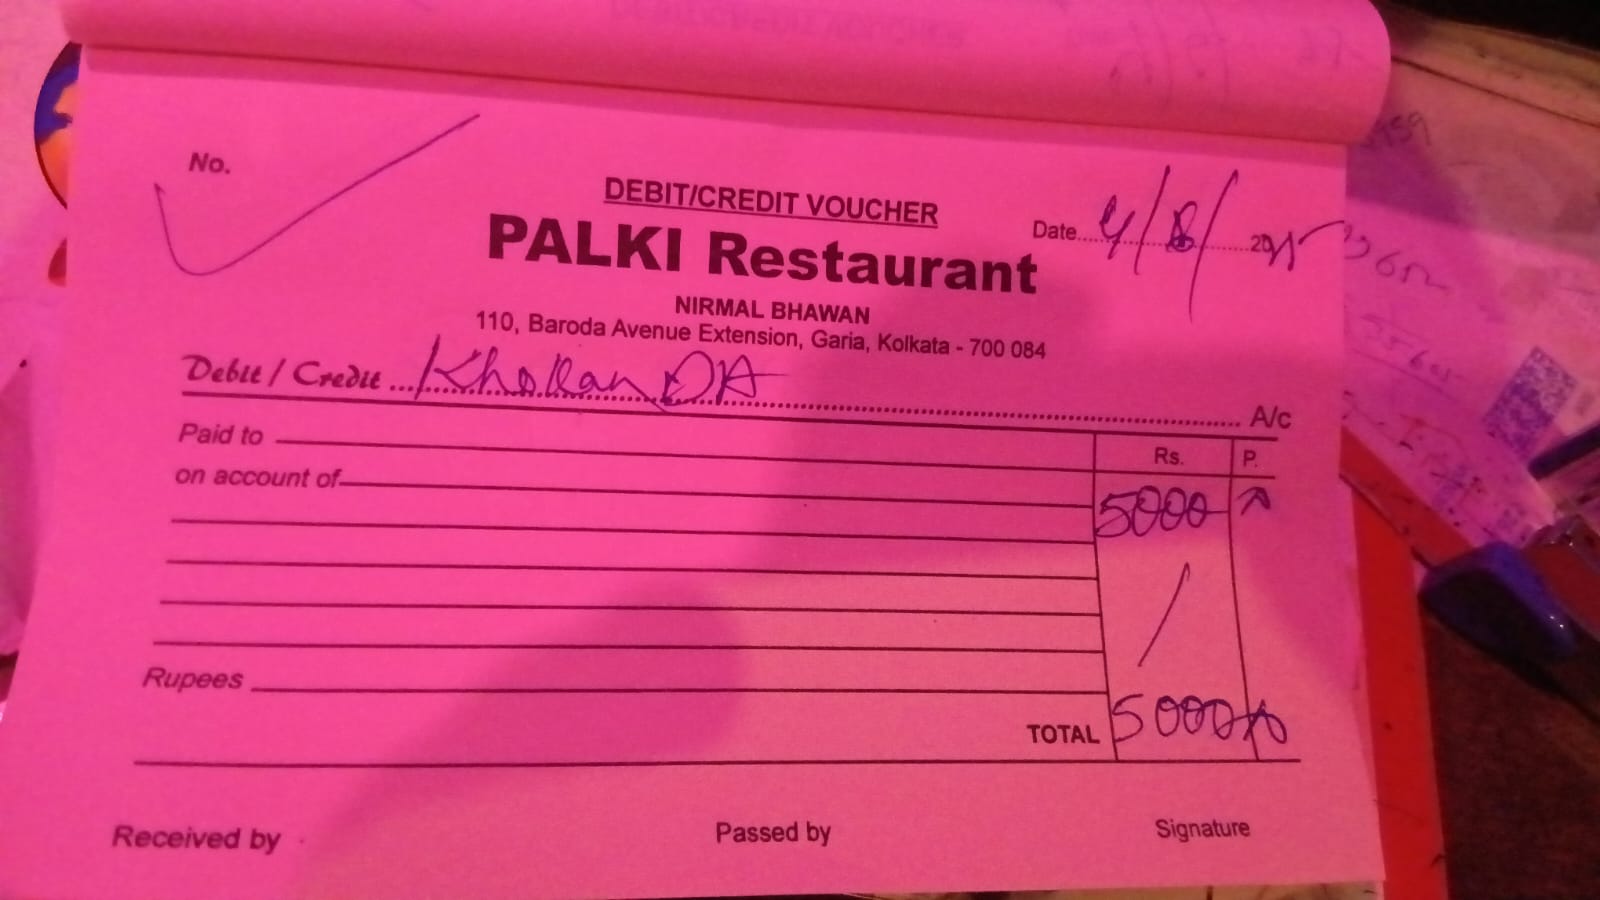 No.
DEBIT/CREDIT VOUCHER
PALKI Restaurant
Date 4/8/2025
NIRMAL BHAWAN
110, Baroda Avenue Extension, Garia, Kolkata - 700 084
Debit / Credit Khokan DA A/c
Paid to
Rs. P.
on account of
5000
Rupees
TOTAL 5000
Received by Passed by Signature